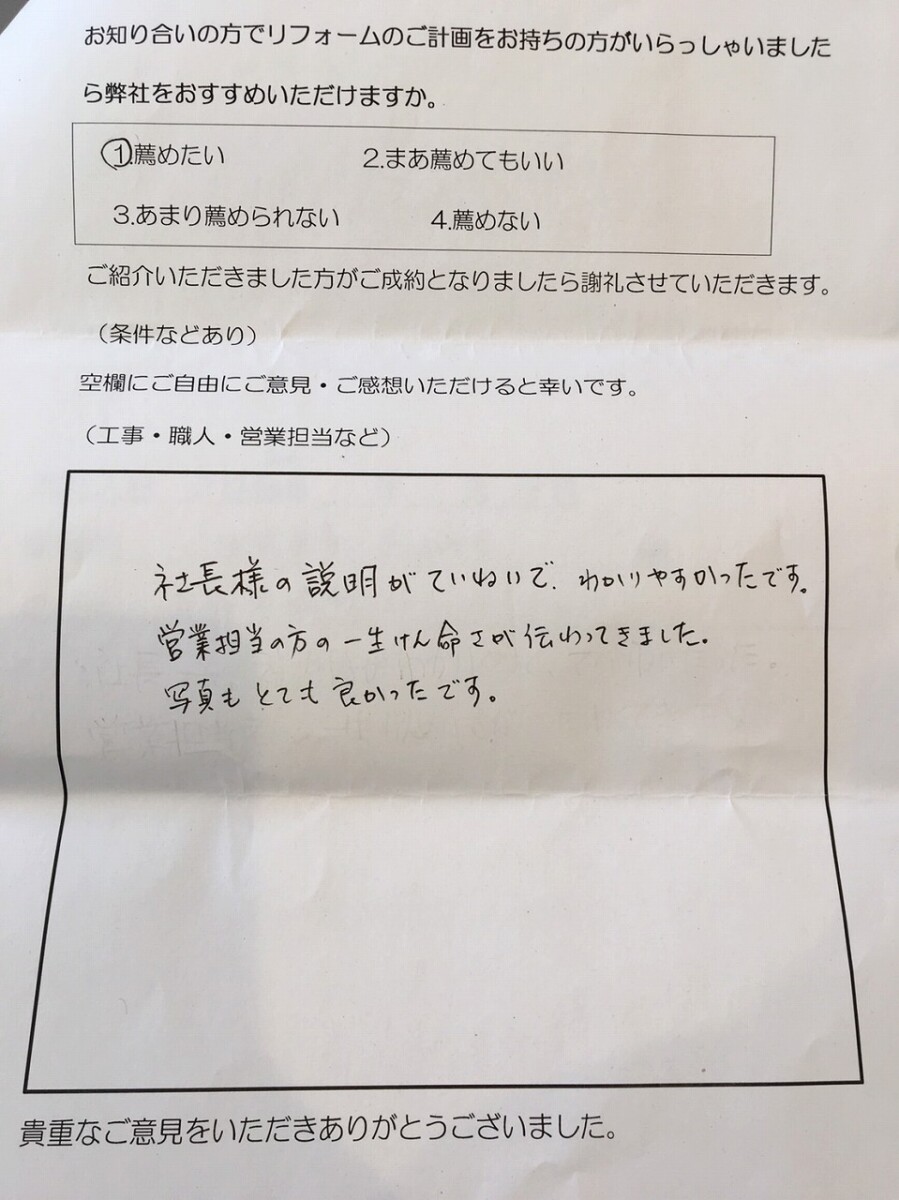 お知り合いの方でリフォームのご計画をお持ちの方がいらっしゃいました
ら弊社をおすすめいただけますか。
1.薦めたい 2.まあ薦めてもいい
3.あまり薦められない 4.薦めない
ご紹介いただきました方がご成約となりましたら謝礼させていただきます。
（条件などあり）
空欄にご自由にご意見・ご感想いただけると幸いです。
（工事・職人・営業担当など）
社長様の説明がていねいで、わかりやすかったです。
営業担当の方の一生けん命さが伝わってきました。
写真もとても良かったです。
貴重なご意見をいただきありがとうございました。